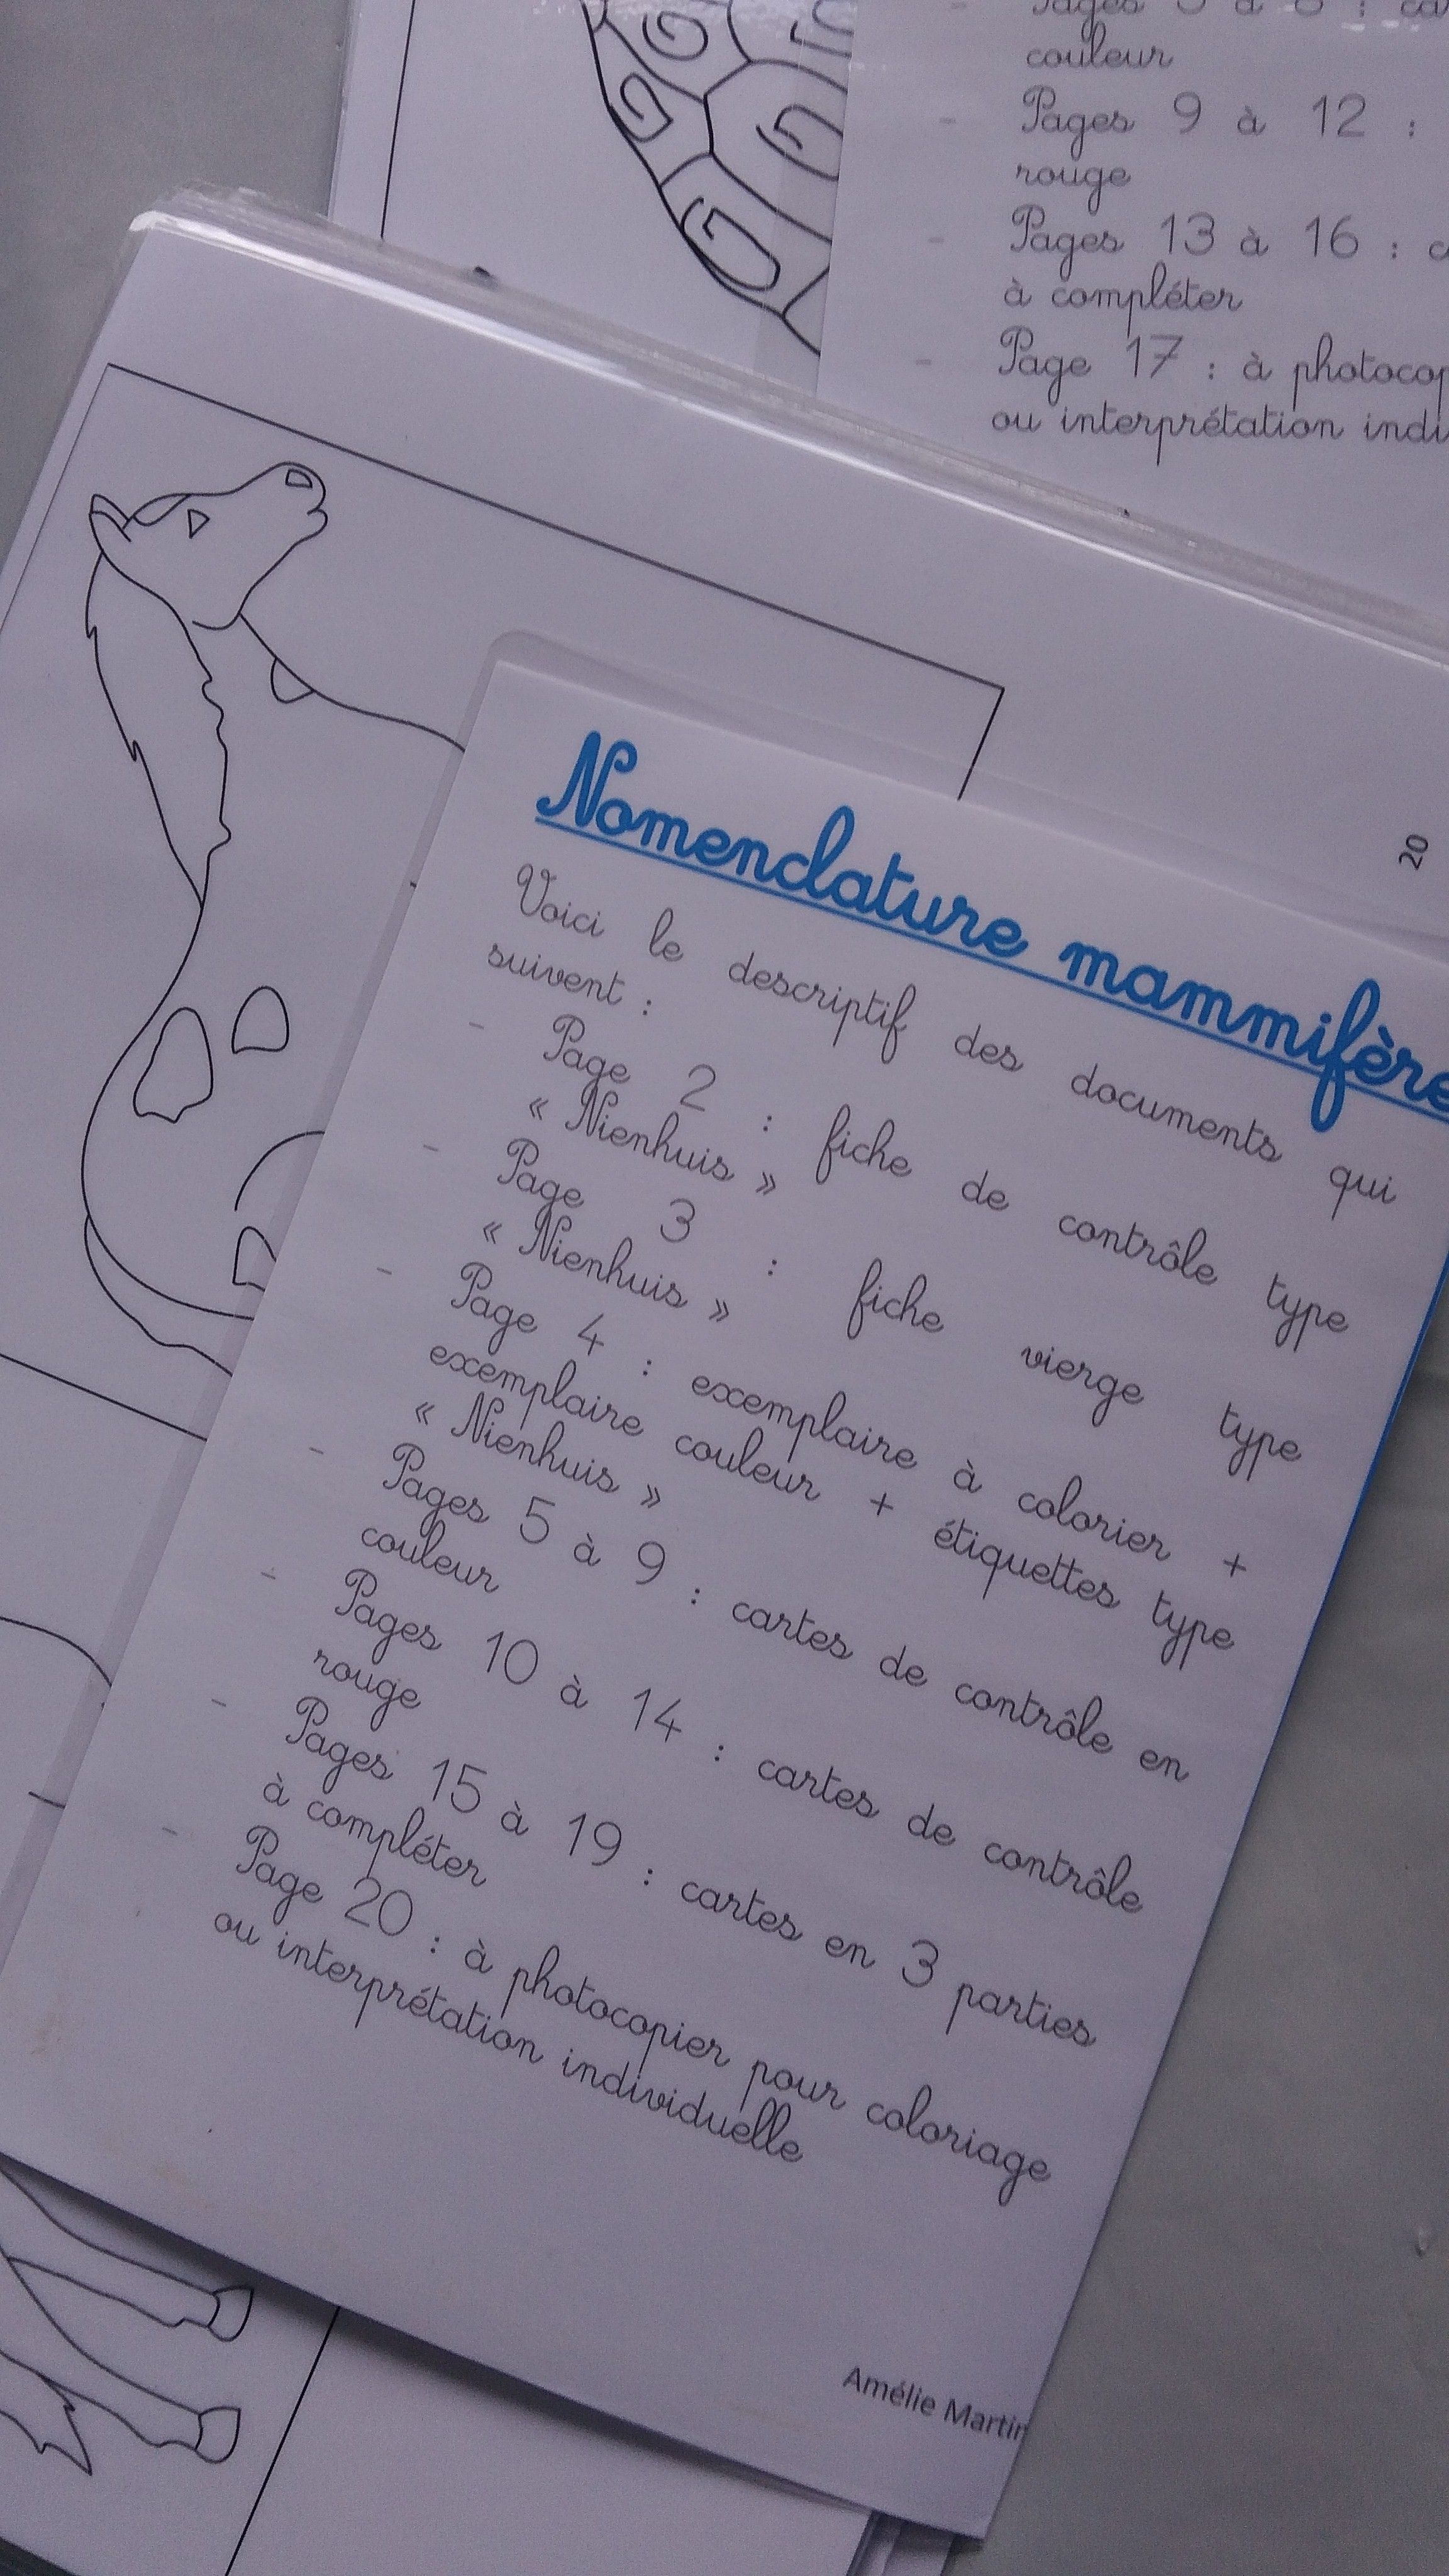 couleur
Pages 9 à 12 :
rouge
Pages 13 à 16 :
à compléter
Page 17 : à
ou interprétation
20
Nomenclature
Voici le descriptif des documents qui
suivent :
- Page 2 : fiche de contrôle type
« Nienhuis »
- Page 3 : fiche vierge type
« Nienhuis »
- Page 4 : exemplaire à colorier +
exemplaire couleur + étiquettes type
« Nienhuis »
- Pages 5 à 9 : cartes de contrôle en
couleur
- Pages 10 à 14 : cartes de contrôle
rouge
- Pages 15 à 19 : cartes en 3 parties
à compléter
- Page 20 : à photocopier pour coloriage
ou interprétation individuelle
Amélie Martin